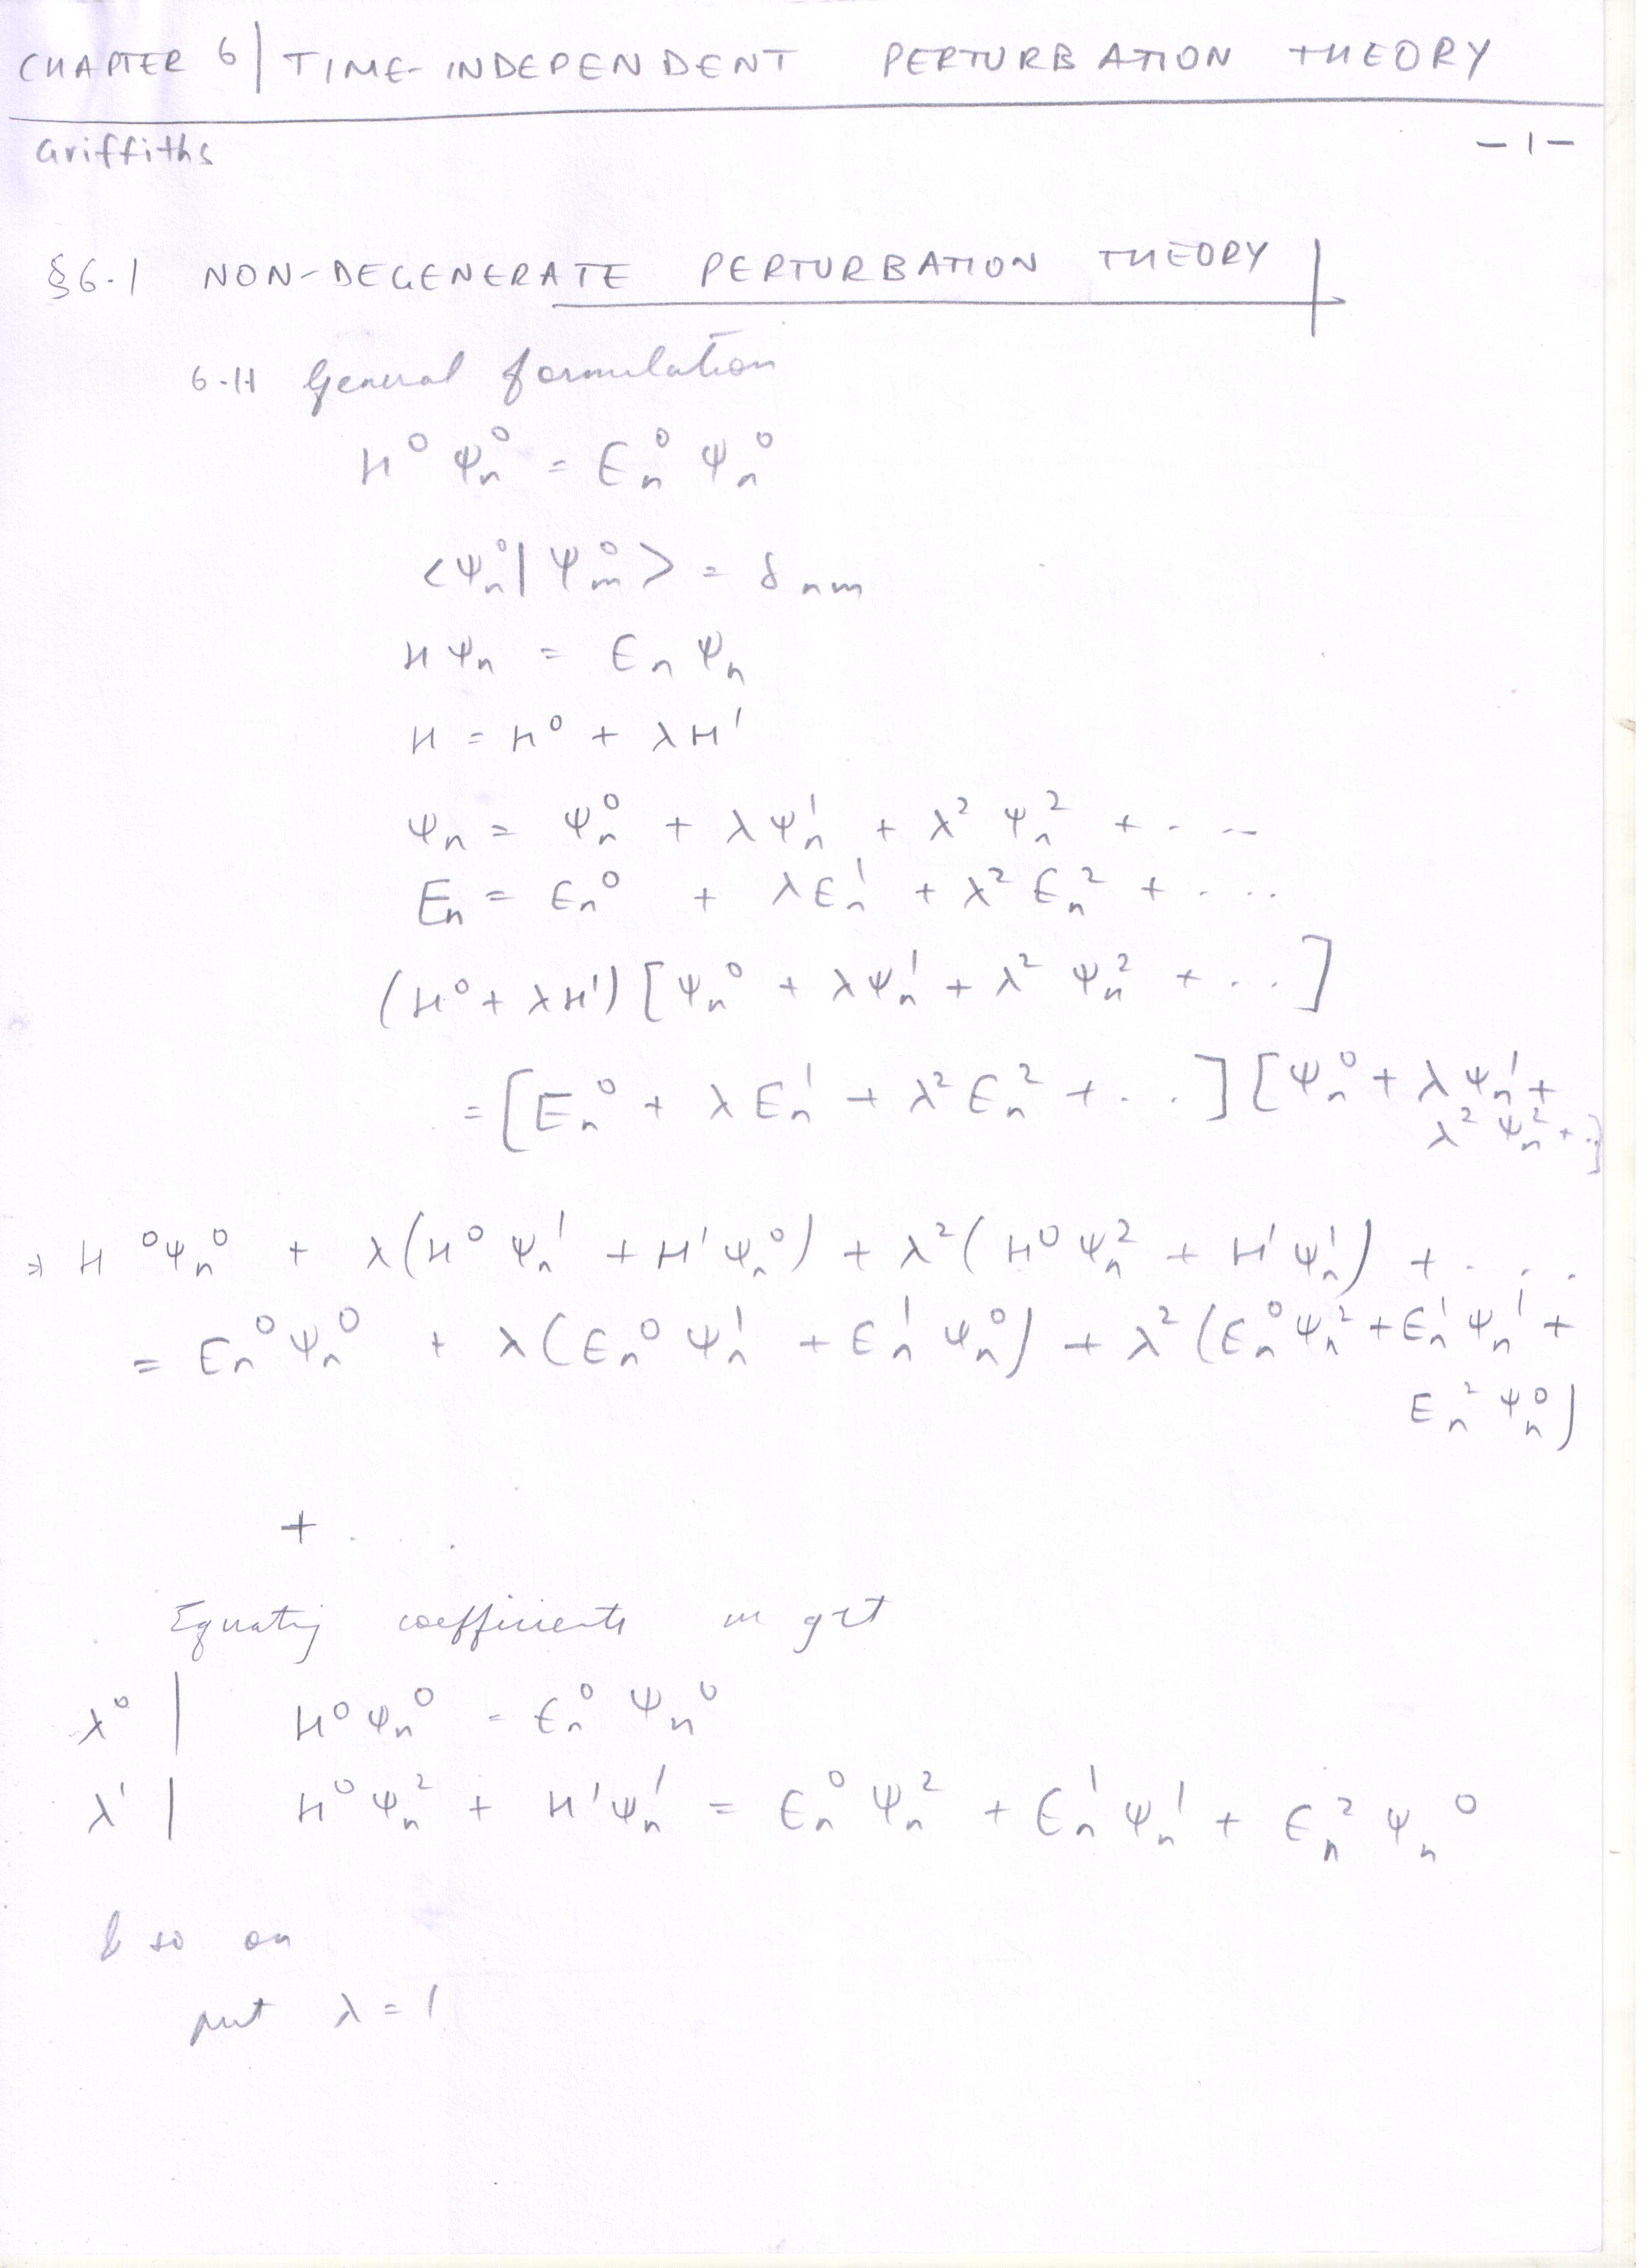 CHAPTER 6 | TIME-INDEPENDENT PERTURBATION THEORY
Griffiths -1-
§6.1 NON-DEGENERATE PERTURBATION THEORY
6.1.1 General formulation
H⁰ Ψₙ⁰ = Eₙ⁰ Ψₙ⁰
<Ψₙ⁰|Ψₘ⁰> = δₙₘ
H Ψₙ = Eₙ Ψₙ
H = H⁰ + λH'
Ψₙ = Ψₙ⁰ + λΨₙ¹ + λ² Ψₙ² + ...
Eₙ = Eₙ⁰ + λEₙ¹ + λ² Eₙ² + ...
(H⁰ + λH') [Ψₙ⁰ + λΨₙ¹ + λ² Ψₙ² + ...]
= [Eₙ⁰ + λEₙ¹ + λ² Eₙ² + ...] [Ψₙ⁰ + λΨₙ¹ +
λ² Ψₙ² + ..]
⇒ H⁰Ψₙ⁰ + λ(H⁰ Ψₙ¹ + H'Ψₙ⁰) + λ²(H⁰Ψₙ² + H'Ψₙ¹) + ...
= Eₙ⁰Ψₙ⁰ + λ(Eₙ⁰ Ψₙ¹ + Eₙ¹ Ψₙ⁰) + λ²(Eₙ⁰Ψₙ² + Eₙ¹Ψₙ¹ +
Eₙ² Ψₙ⁰)
+ ...
Equating coefficients we get
λ⁰ | H⁰Ψₙ⁰ = Eₙ⁰ Ψₙ⁰
λ¹ | H⁰Ψₙ² + H'Ψₙ¹ = Eₙ⁰ Ψₙ² + Eₙ¹ Ψₙ¹ + Eₙ² Ψₙ⁰
& so on
put λ = 1